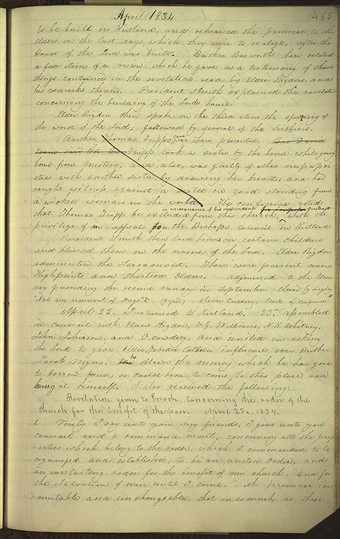 April 1834 465
to be built in Kirtland, and rehearsed the promises to the
elders in the last days, which they were to realize, after the
house of the Lord was built. Brother Bosworth then related
a few items of a vision, which he gave as a testimony of those
things contained in the revelation read by Elder Rigdon, and
his remarks thereon. President Smith explained the revelation
concerning the building of the Lord's house.
Elder Rigdon then spoke on the third item, the spreading of
the word of the Lord, followed by several of the brethren.
Brother Tripp's case presented
Tripp took a sister by the hand while going
home from meeting; he was also guilty of other improprie-
ties with another sister by drawing her breasts, and had
sought witness against a sister in good standing from
a wicked woman in the world. The conference voted
that Thomas Tripp be excluded from this church, with the
privilege of an appeal to the Bishop's council in Kirtland
President Smith then laid hands on certain children
and blessed them in the name of the Lord. Elder Rigdon
administered the Sacrament. There were present seven
Highpriests and thirteen Elders. Adjourned to the Mon-
day preceding the second Sunday in September. Closed by singing
Oliver Cowdery, Clerk of
April 22. I returned to Kirtland. 23d assembled
in council with Elders Rigdon, F. G. Williams, N. K. Whitney,
John Johnson, and O. Cowdery, and united in asking
the Lord to give Elder Zebedee Coltrin influence over Brother
Jacob Myres, to obtain the money which he has gone
to borrow for us, or cause him to come to this place and
bring it himself. I also received the following:
Revelation given to Enoch, concerning the order of the
church for the benefit of the poor. April 23d, 1834.
1. Verily I say unto you my friends, I give unto you
counsel and a commandment, concerning all the prop-
erties which belong to the order, which I commanded to be
organized and established, to be an united order, and
an everlasting order for the benefit of my church, and for
the salvation of men until I come, with promise im-
mutable and unchangeable, that inasmuch as those